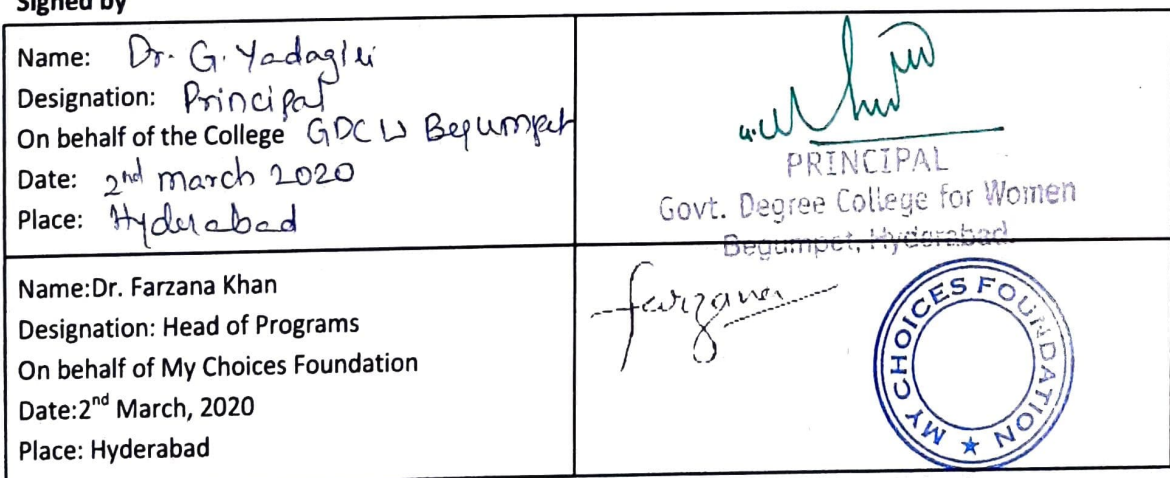 Signed by
Name: Dr. G. Yadagiri
Designation: Principal
On behalf of the College GDCW Begumpet
Date: 2nd march 2020
Place: Hyderabad
PRINCIPAL
Govt. Degree College for Women
Begumpet, Hyderabad.
Name:Dr. Farzana Khan
Designation: Head of Programs
On behalf of My Choices Foundation
Date:2nd March, 2020
Place: Hyderabad
Farzana
MY CHOICES FOUNDATION